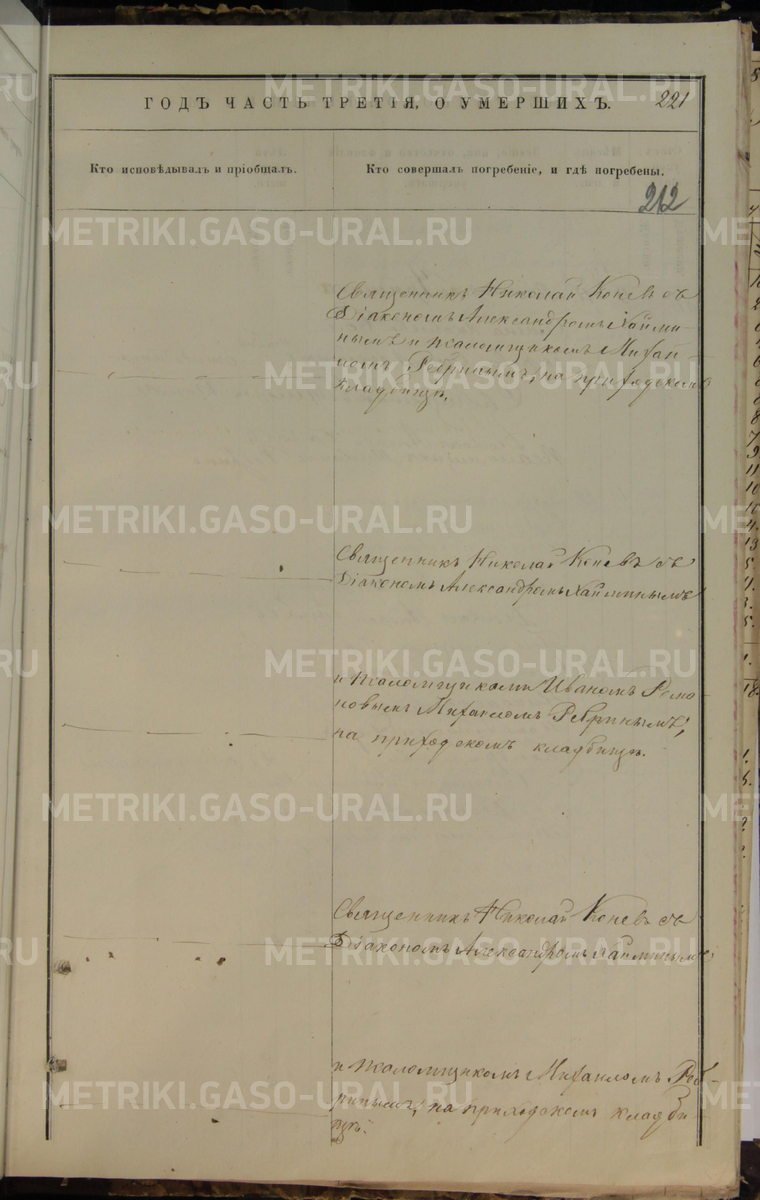 ГОДЪ ЧАСТЬ ТРЕТІЯ, О УМЕРШИХЪ.
221
Кто исповѣдывалъ и пріобщалъ.
Кто совершалъ погребеніе, и гдѣ погребены.
212
Священникъ Николай Коневъ съ
Діакономъ Александромъ Хаймин
нымъ и псаломщикомъ Михаи
ломъ Ребринымъ, на приходскомъ
кладбищѣ.
Священникъ Николай Коневъ съ
Діакономъ Александромъ Хайминымъ
и псаломщиками Иваномъ Рома
новымъ Михаиломъ Ребринымъ,
на приходскомъ кладбищѣ.
Священникъ Николай Коневъ съ
Діакономъ Александромъ Хайминымъ
и псаломщикомъ Михаиломъ Реб-
ринымъ, на приходскомъ кладби-
щѣ.
METRIKI.GASO-URAL.RU